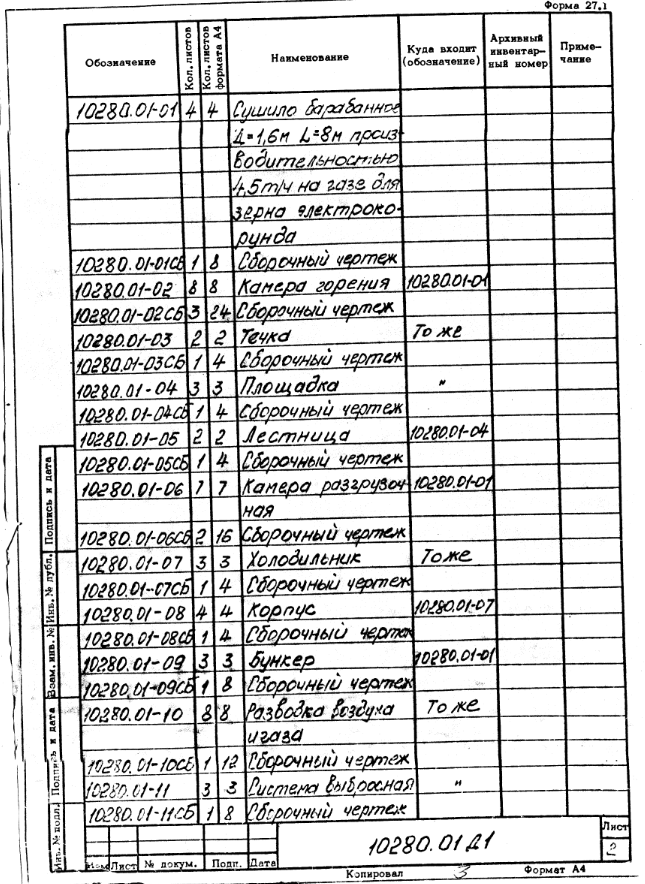 Форма 27.1
Обозначение Кол. листов Кол. листов формата А4 Наименование Куда входит (обозначение) Архивный инвентарный номер Примечание
10280.01-01 4 4 Сушило барабанное
Д=1,6м L=8м произ-
водительностью
4,5т/ч на газе для
зерна электроко-
рунда
10280.01-01СБ 1 8 Сборочный чертеж
10280.01-02 8 8 Камера горения 10280.01-01
10280.01-02СБ 3 24 Сборочный чертеж
10280.01-03 2 2 Течка То же
10280.01-03СБ 1 4 Сборочный чертеж
10280.01-04 3 3 Площадка "
10280.01-04СБ 1 4 Сборочный чертеж
10280.01-05 2 2 Лестница 10280.01-04
10280.01-05СБ 1 4 Сборочный чертеж
10280.01-06 7 7 Камера разгрузоч- 10280.01-01
ная
10280.01-06СБ 2 16 Сборочный чертеж
10280.01-07 3 3 Холодильник То же
10280.01-07СБ 1 4 Сборочный чертеж
10280.01-08 4 4 Корпус 10280.01-07
10280.01-08СБ 1 4 Сборочный чертеж
10280.01-09 3 3 Бункер 10280.01-01
10280.01-09СБ 1 8 Сборочный чертеж
10280.01-10 8 8 Разводка воздуха То же
и газа
10280.01-10СБ 1 12 Сборочный чертеж
10280.01-11 3 3 Система выбросная "
10280.01-11СБ 1 8 Сборочный чертеж
Инв. № подл. Подпись и дата Взам. инв. № Инв. № дубл. Подпись и дата
10280.01 Д1
Лист
2
Изм Лист № докум. Подп. Дата
Копировал 3 Формат А4